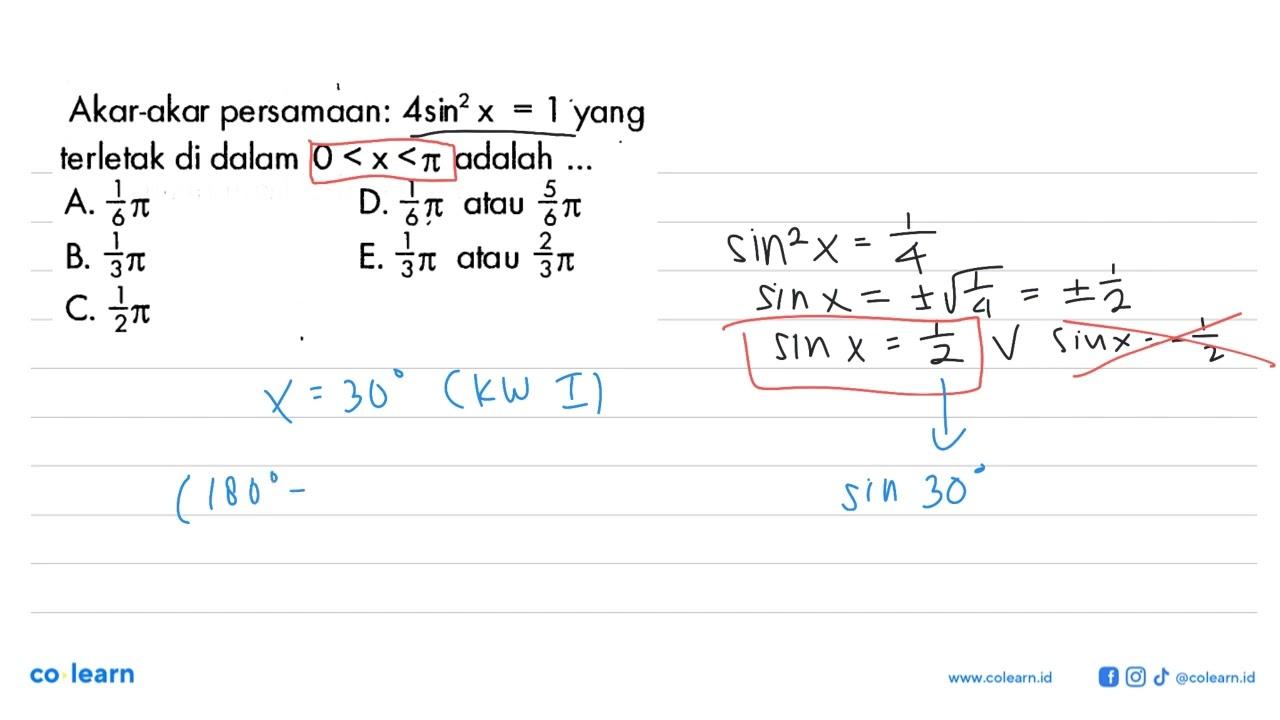 Akar-akar persamaan: 4sin² x = 1 yang
terletak di dalam 0 < x < π adalah ...
A. 1/6 π
D. 1/6 π atau 5/6 π
B. 1/3 π
E. 1/3 π atau 2/3 π
C. 1/2 π
sin² x = 1/4
sin x = ±√1/4 = ± 1/2
sin x = 1/2 V sin x = - 1/2
x = 30° (KW I)
(180° -
sin 30°
co learn
www.colearn.id
@colearn.id